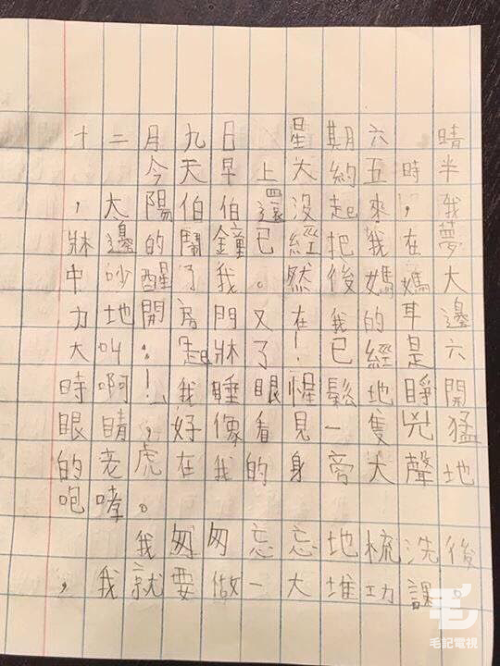 十二月九日 星期六 晴
今天早上大約五時半
，大陽伯伯還沒起來，我
牀邊的鬧鐘已經把我在夢
中吵醒了我。然後媽媽大
力地開房門又在我的耳邊
大叫：起牀了！已經是六
時啊！我睡眼惺鬆地睜開
眼睛，好像看見一隻兇猛
的老虎在我的身旁大聲地
咆哮。
我匆匆忘忘地梳洗後
，我就要做一大堆功課。
毛記電視